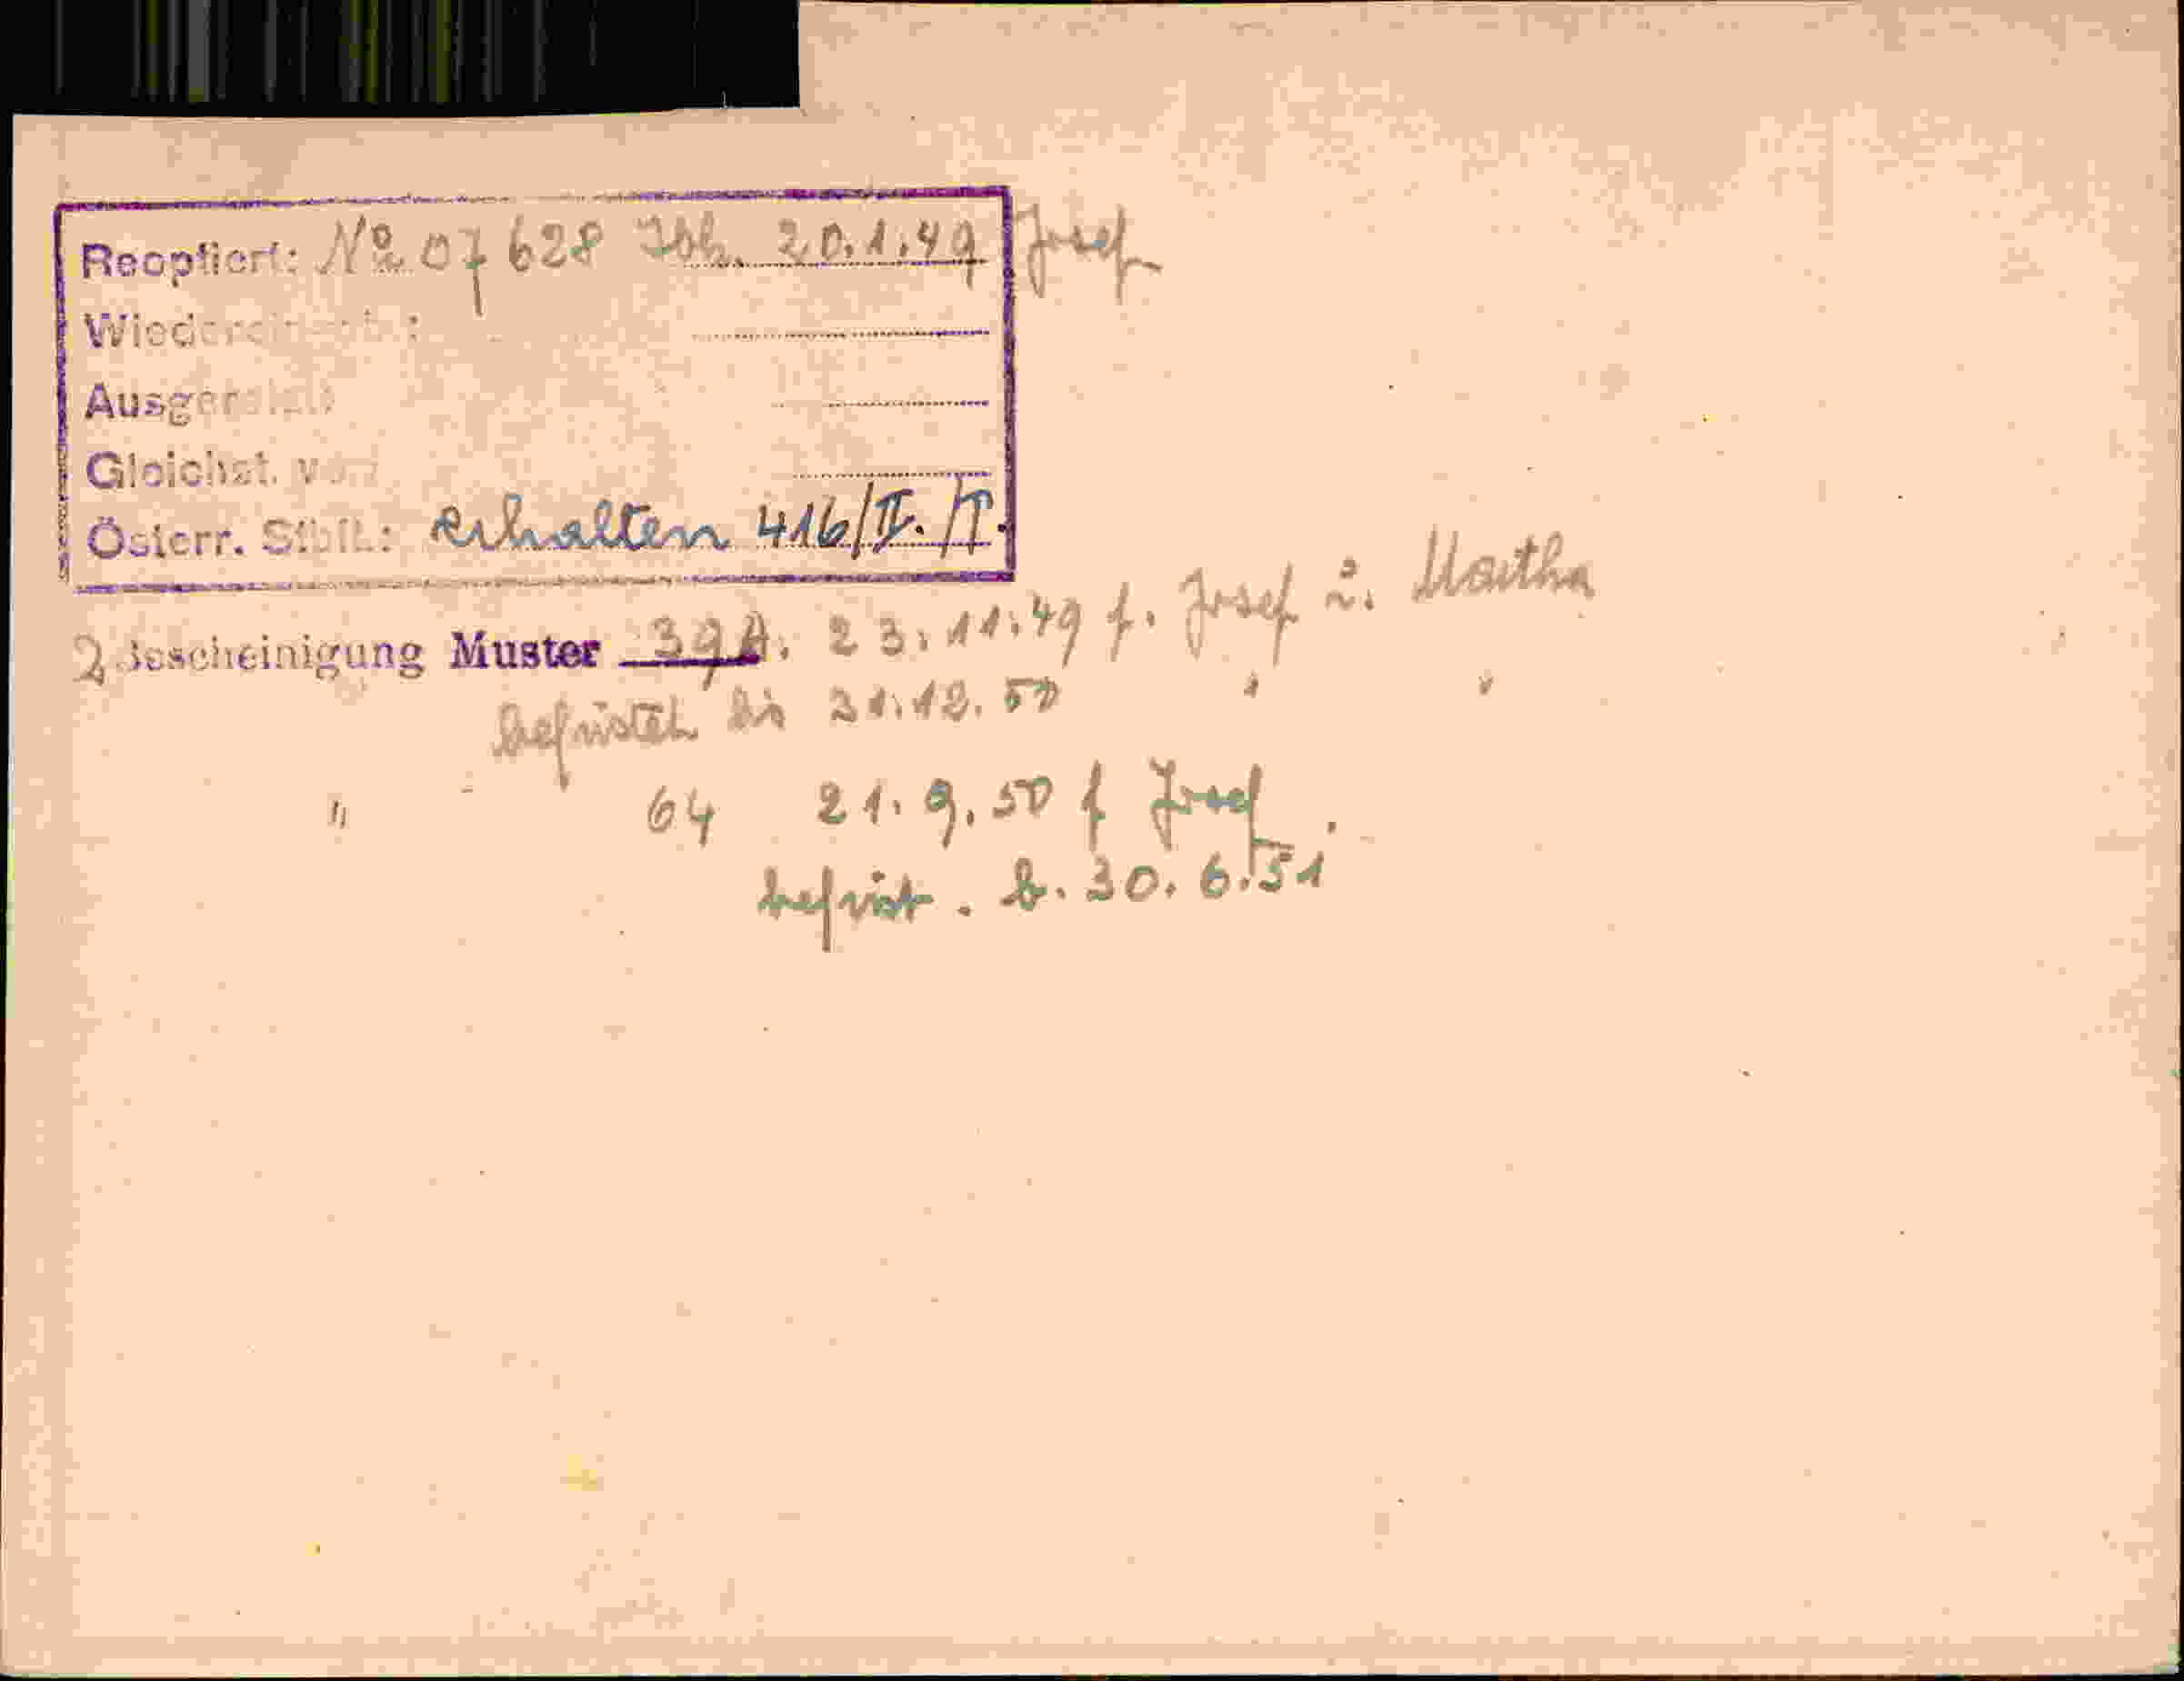 Reoptiert: № 07628 Ibk. 20.1.49 Josef
Wiedereinb.:
Ausgereist:
Gleichst. v.
Österr. Stbft.: erhalten 416/II./T.
2 Bescheinigung Muster 39A. 23.11.49 f. Josef u. Martha
befristet bis 31.12.50 " "
" 64 21.9.50 f Josef
befrist. b. 30.6.51